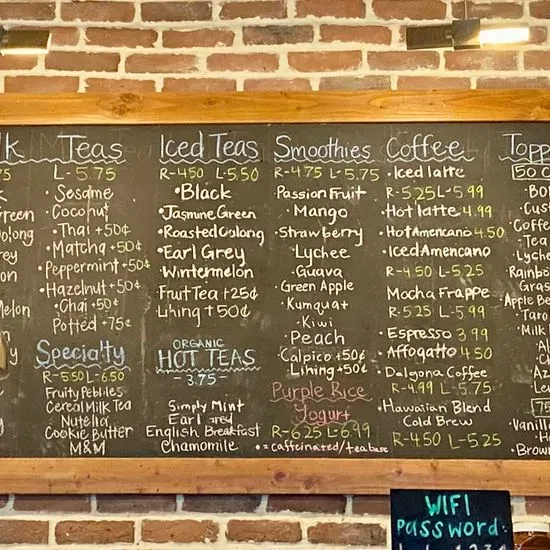 lk
Teas
L-5.75
•Sesame
•Coconut
•Thai +50¢
•Matcha +50¢
•Peppermint +50¢
•Hazelnut +50¢
•Chai +50¢
Potted +75¢
Specialty
R-5.50 L-6.50
Fruity Pebbles
Cereal Milk Tea
Nutella
Cookie Butter
M&M
Iced Teas
R-4.50 L-5.50
•Black
•Jasmine Green
•Roasted Oolong
•Earl Grey
Wintermelon
Fruit Tea +25¢
Lihing +50¢
ORGANIC
HOT TEAS
-3.75-
Simply Mint
Earl
English Breakfast
Chamomile
Smoothies
R-4.75 L-5.75
Passion Fruit
•Mango
•Strawberry
•Lychee
•Guava
•Green Apple
•Kumquat
•Kiwi
Peach
•Calpico +50¢
•Lihing +50¢
Purple Rice
Yogurt
R-6.25 L-6.99
•=caffeinated/tea base
Coffee
•Iced latte
R-5.25 L-5.99
Hot latte 4.99
•Hot Americano 4.50
•Iced Americano
R-4.50 L-5.25
Mocha Frappe
R-5.25 L-5.99
•Espresso 3.99
•Affogatto 4.50
Dalgona Coffee
R-4.99 L-5.75
•Hawaiian Blend
Cold Brew
R-4.50 L-5.25
Topp
50 C
Bo
Cust
Coffee
Tea
Lyche
Rainbo
Gras
Apple Be
Taro
Milk
Al
Ch
Az
Le
Vanilla
Brown
WIFI
Password: